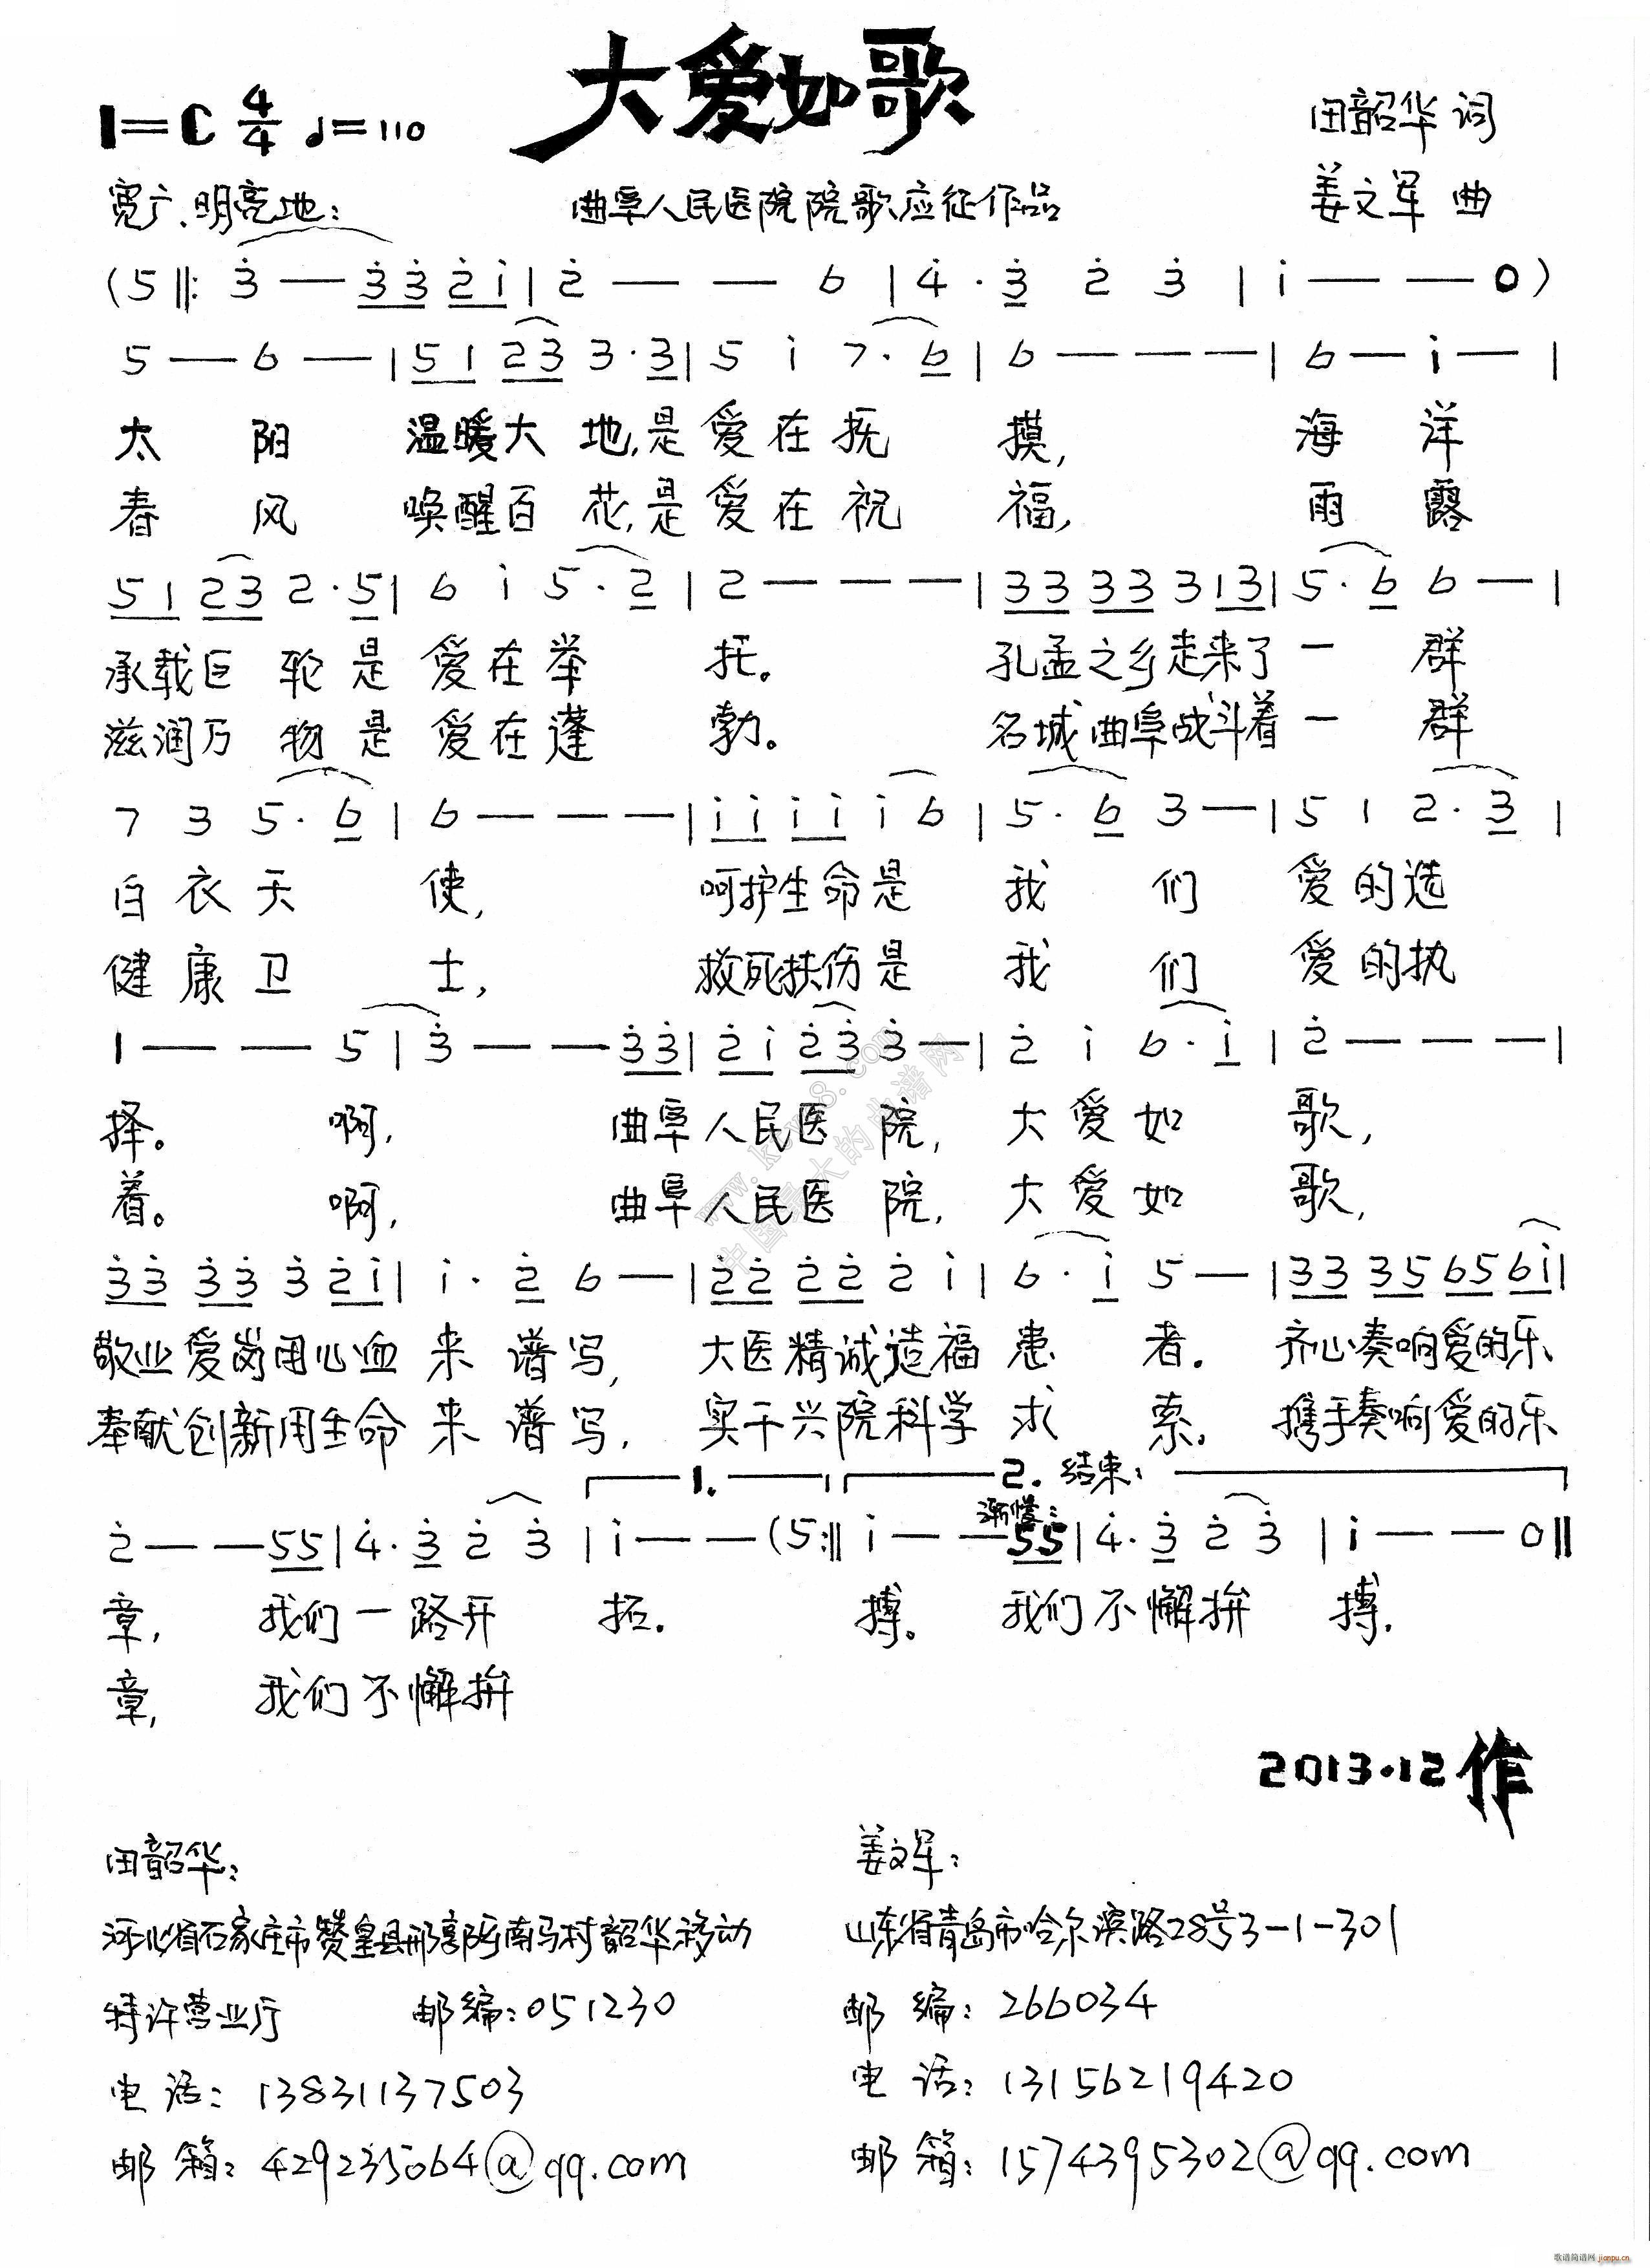 大爱如歌
1=C 4/4 ♩=110
田韶华 词
宽广、明亮地:
曲阜人民医院院歌应征作品
姜文军 曲
(5 ‖: 3̇ — 3̇ 3̇ 2̇ i | 2̇ — — 6 | 4̇ · 3̇ 2̇ 3̇ | i — — 0 )
5 — 6 — | 5 1 2 3 3 · 3 | 5 i 7 · 6 | 6 — — — | 6 — i — |
太 阳 温暖大 地,是 爱 在 抚 摸, 海 洋
春 风 唤醒百 花,是 爱 在 祝 福, 雨 露
5 1 2 3 2 · 5 | 6 i 5 · 2 | 2 — — — | 3 3 3 3 3 1 3 | 5 · 6 6 — |
承载巨 轮 是 爱 在 举 托。 孔孟之乡走来了 一 群
滋润万 物 是 爱 在 蓬 勃。 名城曲阜战斗着 一 群
7 3 5 · 6 | 6 — — — | i i i i i 6 | 5 · 6 3 — | 5 1 2 · 3 |
白 衣 天 使, 呵护生命是 我 们 爱的选
健 康 卫 士, 救死扶伤是 我 们 爱的执
1 — — 5 | 3̇ — — 3̇ 3̇ | 2̇ i 2̇ 3̇ 3̇ — | 2̇ i 6 · i | 2̇ — — — |
择。 啊, 曲阜人民医 院, 大 爱 如 歌,
着。 啊, 曲阜人民医 院, 大 爱 如 歌,
3̇ 3̇ 3̇ 3̇ 3̇ 2̇ i | i · 2̇ 6 — | 2̇ 2̇ 2̇ 2̇ 2̇ i | 6 · i 5 — | 3 3 3 5 6 5 6 i |
敬业爱岗用心血 来 谱 写, 大医精诚造福 患 者. 齐心奏响爱的乐
奉献创新用生命 来 谱 写, 实干兴院科学 求 索. 携手奏响爱的乐
1. 2. 结束:
渐慢:
2̇ — — 5 5 | 4̇ · 3̇ 2̇ 3̇ | i — — (5 :‖ i — — 5 5 | 4̇ · 3̇ 2̇ 3̇ | i — — 0 ‖
章, 我们一路开 拓. 搏。 我们不懈拚 搏.
章, 我们不懈拚
www.ktvc8.com
中国最大的曲谱网
2013.12作
田韶华:
姜文军:
河北省石家庄市赞皇县邢郭乡南马村韶华移动
山东省青岛市哈尔滨路28号3-1-301
特许营业厅 邮编:051230
邮 编: 266034
电 话: 13831137503
电 话: 13156219420
邮 箱: 429235064@qq.com
邮 箱: 1574395302@qq.com
歌谱简谱网
jianpu.cn